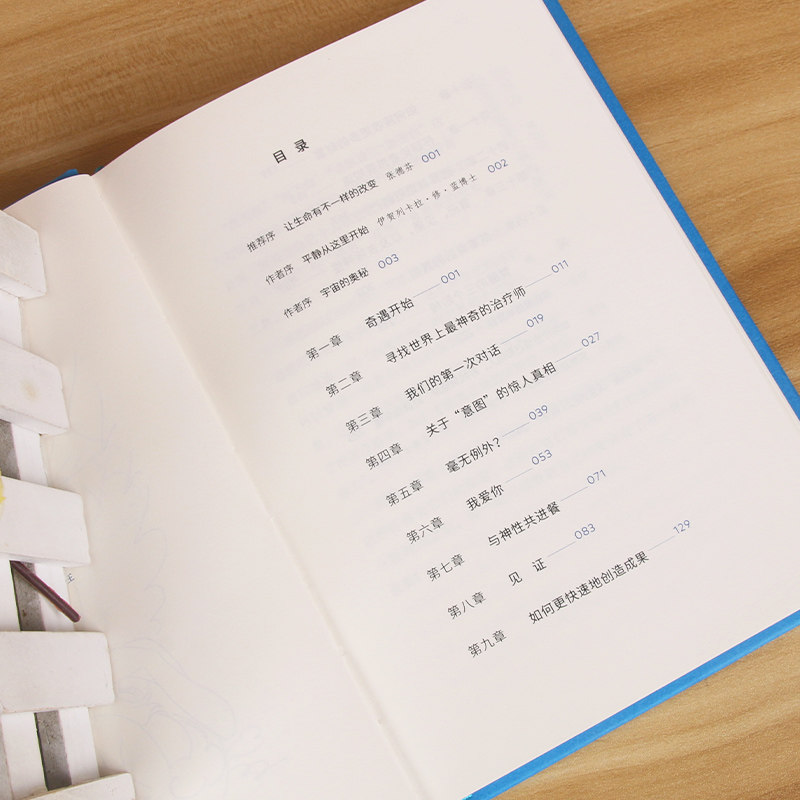 目录
推荐序 让生命有不一样的改变 张德芬 001
作者序 平静从这里开始 伊贺列卡拉·修·蓝博士 002
作者序 宇宙的奥秘 003
第一章 奇遇开始——001
第二章 寻找世界上最神奇的治疗师——011
第三章 我们的第一次对话——019
第四章 关于“意图”的惊人真相——027
第五章 毫无例外?——039
第六章 我爱你——053
第七章 与神性共进餐——071
第八章 见 证——083
第九章 如何更快速地创造成果——129